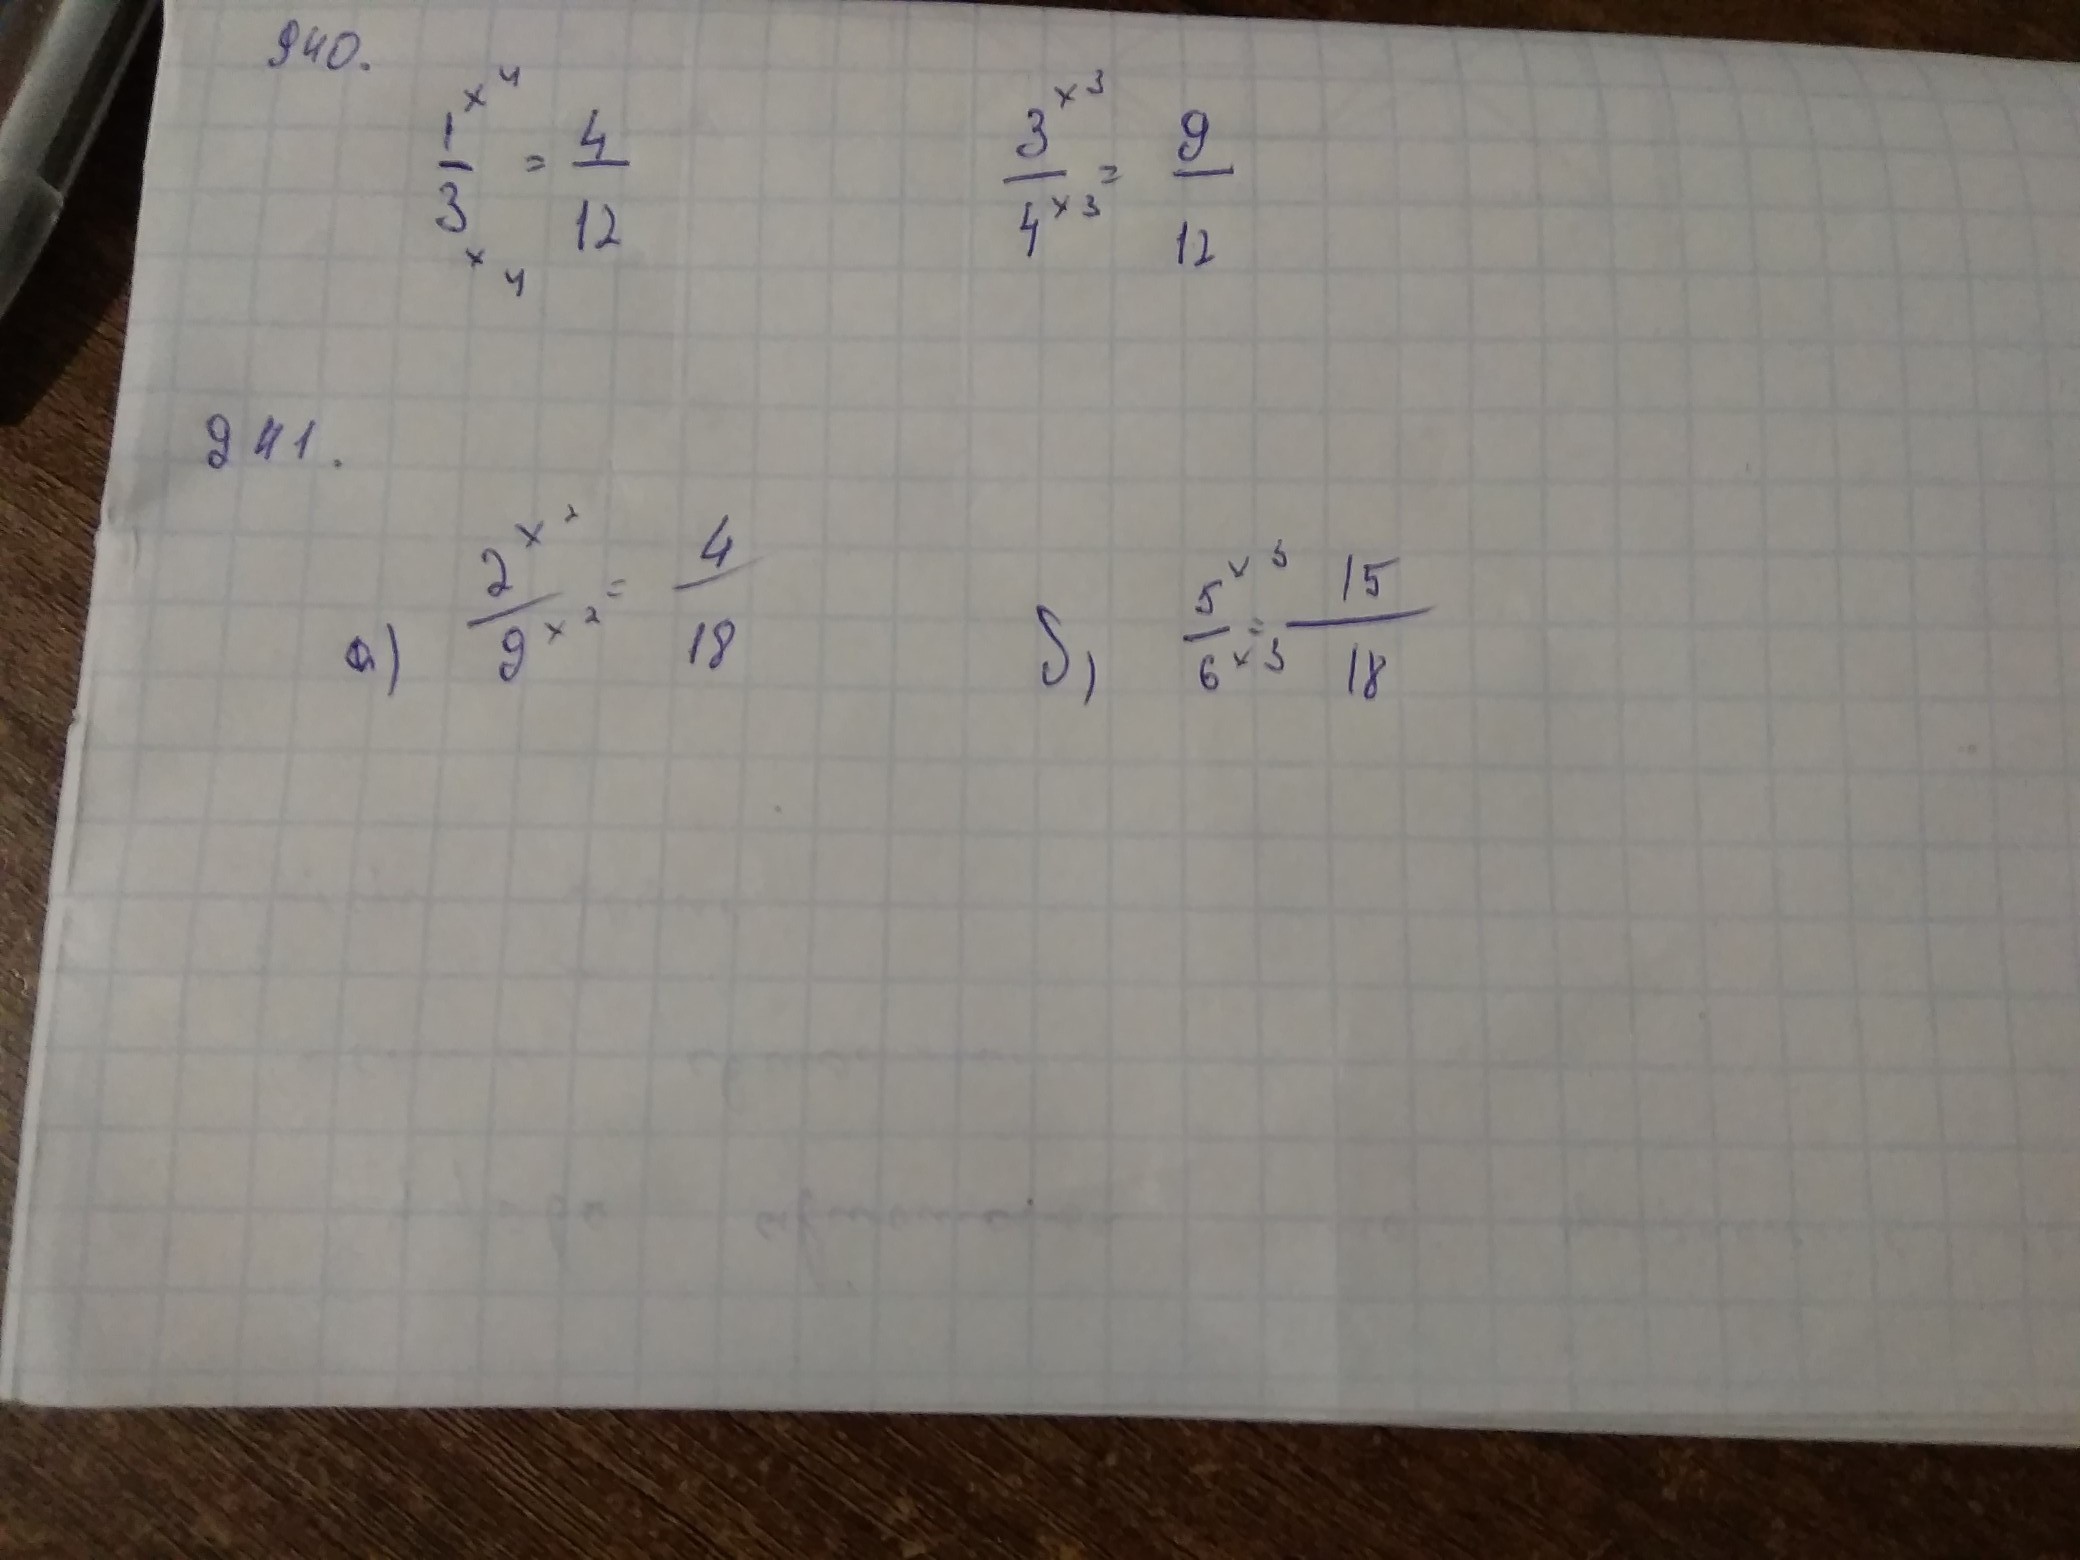 940.
1 x 4 / 3 x 4 = 4 / 12    3 x 3 / 4 x 3 = 9 / 12
941.
а) 2 x 2 / 9 x 2 = 4 / 18    б) 5 x 3 / 6 x 3 = 15 / 18